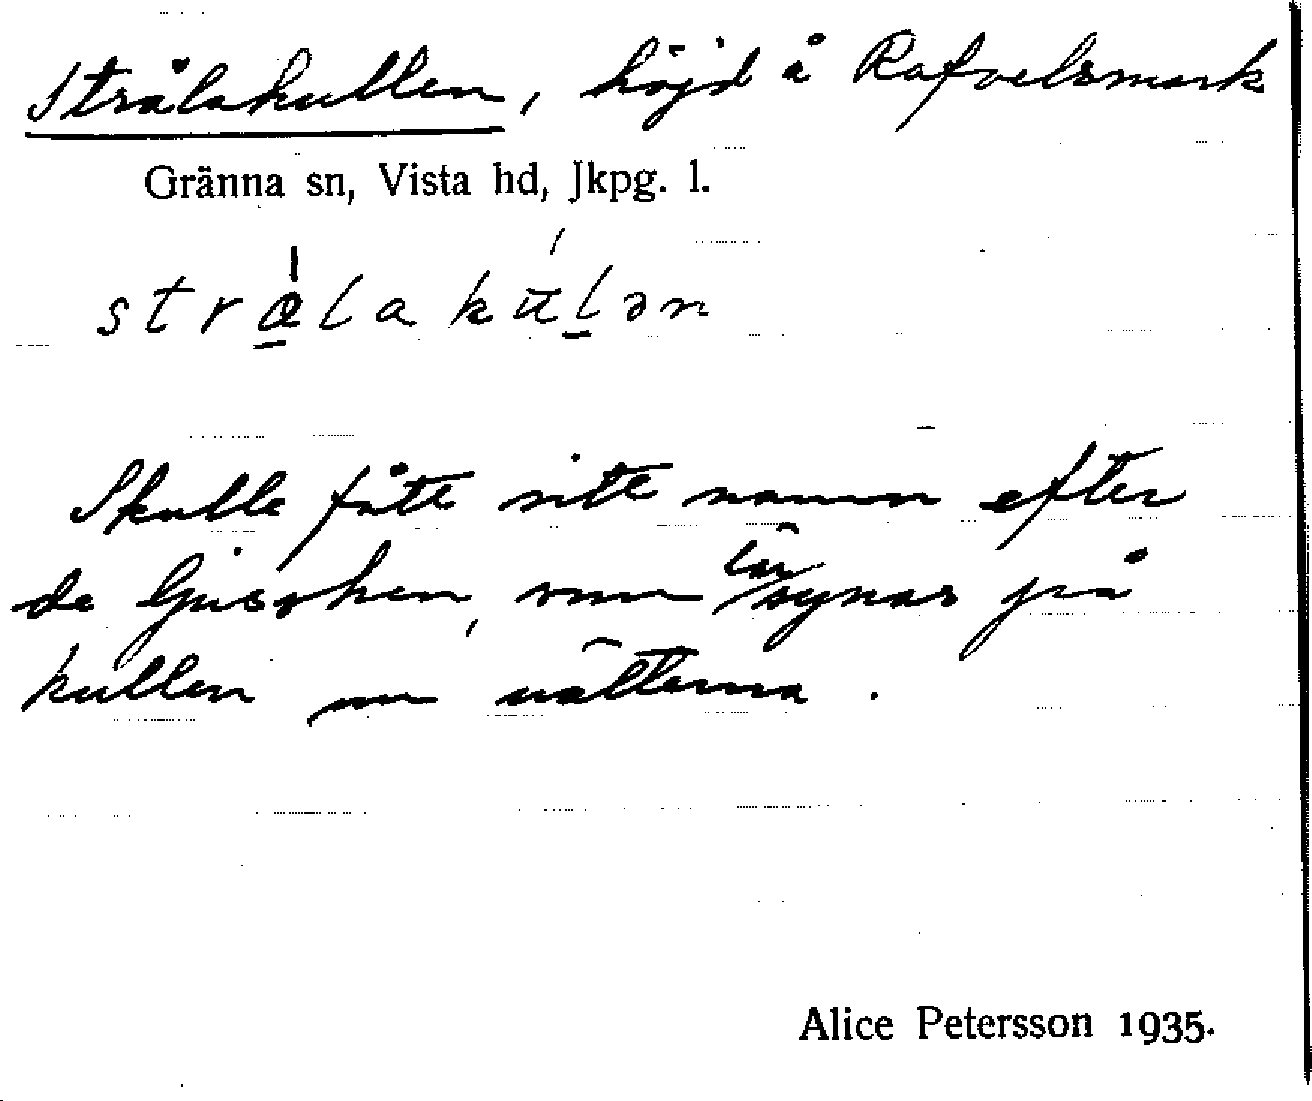 Strålakullen, höjd å Rafvelsmark
Gränna sn, Vista hd, Jkpg. l.
strålakulən
Skulle fått sitt namn efter
de ljusken, som lär synas på
kullen om nätterna.
Alice Petersson 1935.